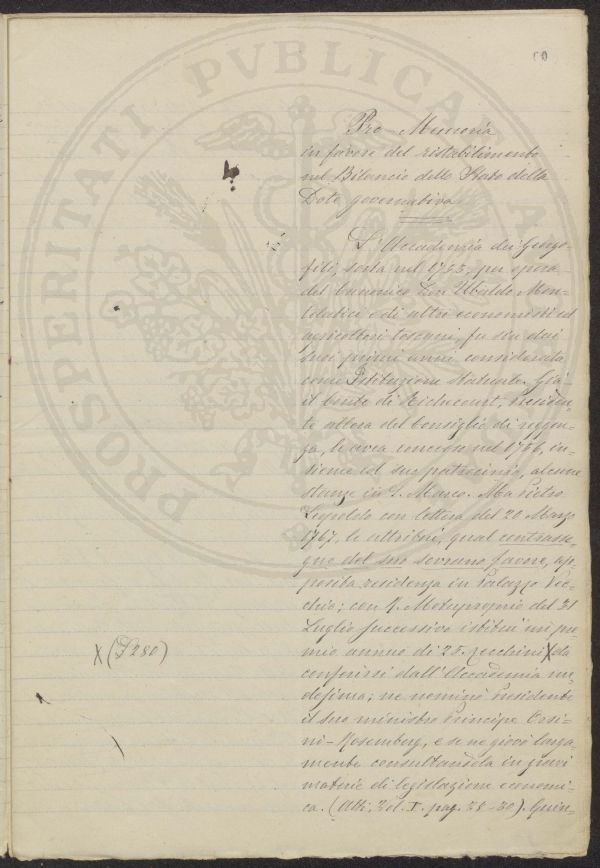 Pro-Memoria
in favore del ristabilimento
nel Bilancio dello Stato della
Dote governativa
L'Accademia dei Georgo-
fili, sorta nel 1753, per opera
del Canonico Don Ubaldo Mon-
telatici e di altri economisti ed
agricoltori toscani, fu sin dai
suoi primi anni considerata
come Istituzione statuale. Già
il Conte di Richecourt, Presiden-
te allora del Consiglio di reggen-
za, le avea concesso nel 1756, in-
sieme col suo patrocinio, alcune
stanze in S. Marco. Ma Pietro
Leopoldo con lettera del 20 Marzo
1767, le attribuì, qual contrasse-
gno del suo sovrano favore, ap-
posita residenza in Palazzo Vec-
chio; con R. Motuproprio del 31
Luglio successivo istituì un pre-
mio annuo di 25 zecchini X da
X (£ 280)
conferirsi dall'Accademia me-
desima; ne nominò Presidente
il suo ministro Principe Orsi-
ni-Rosemberg, e se ne giovò larga-
mente consultandola in gravi
materie di legislazione economi-
ca. (Atti, Vol. I. pag. 28-30). Quin-
PROSPERITATI PVBLICAE AV